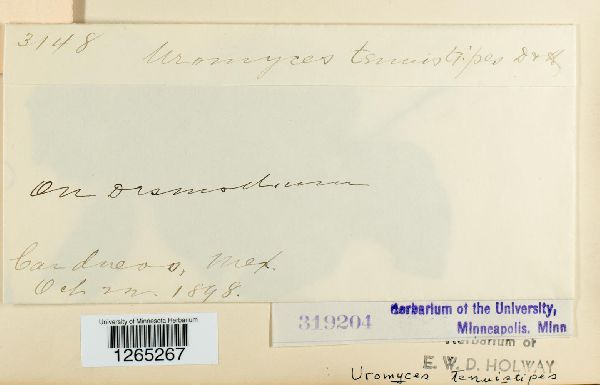 3148
Uromyces tenuistipes D & H
On Desmodium
Cardneas, Mex.
Oct 22 1898.
319204
Herbarium of the University,
Minneapolis, Minn
University of Minnesota Herbarium
1265267
Herbarium of
E. W. D. HOLWAY
Uromyces tenuistipes